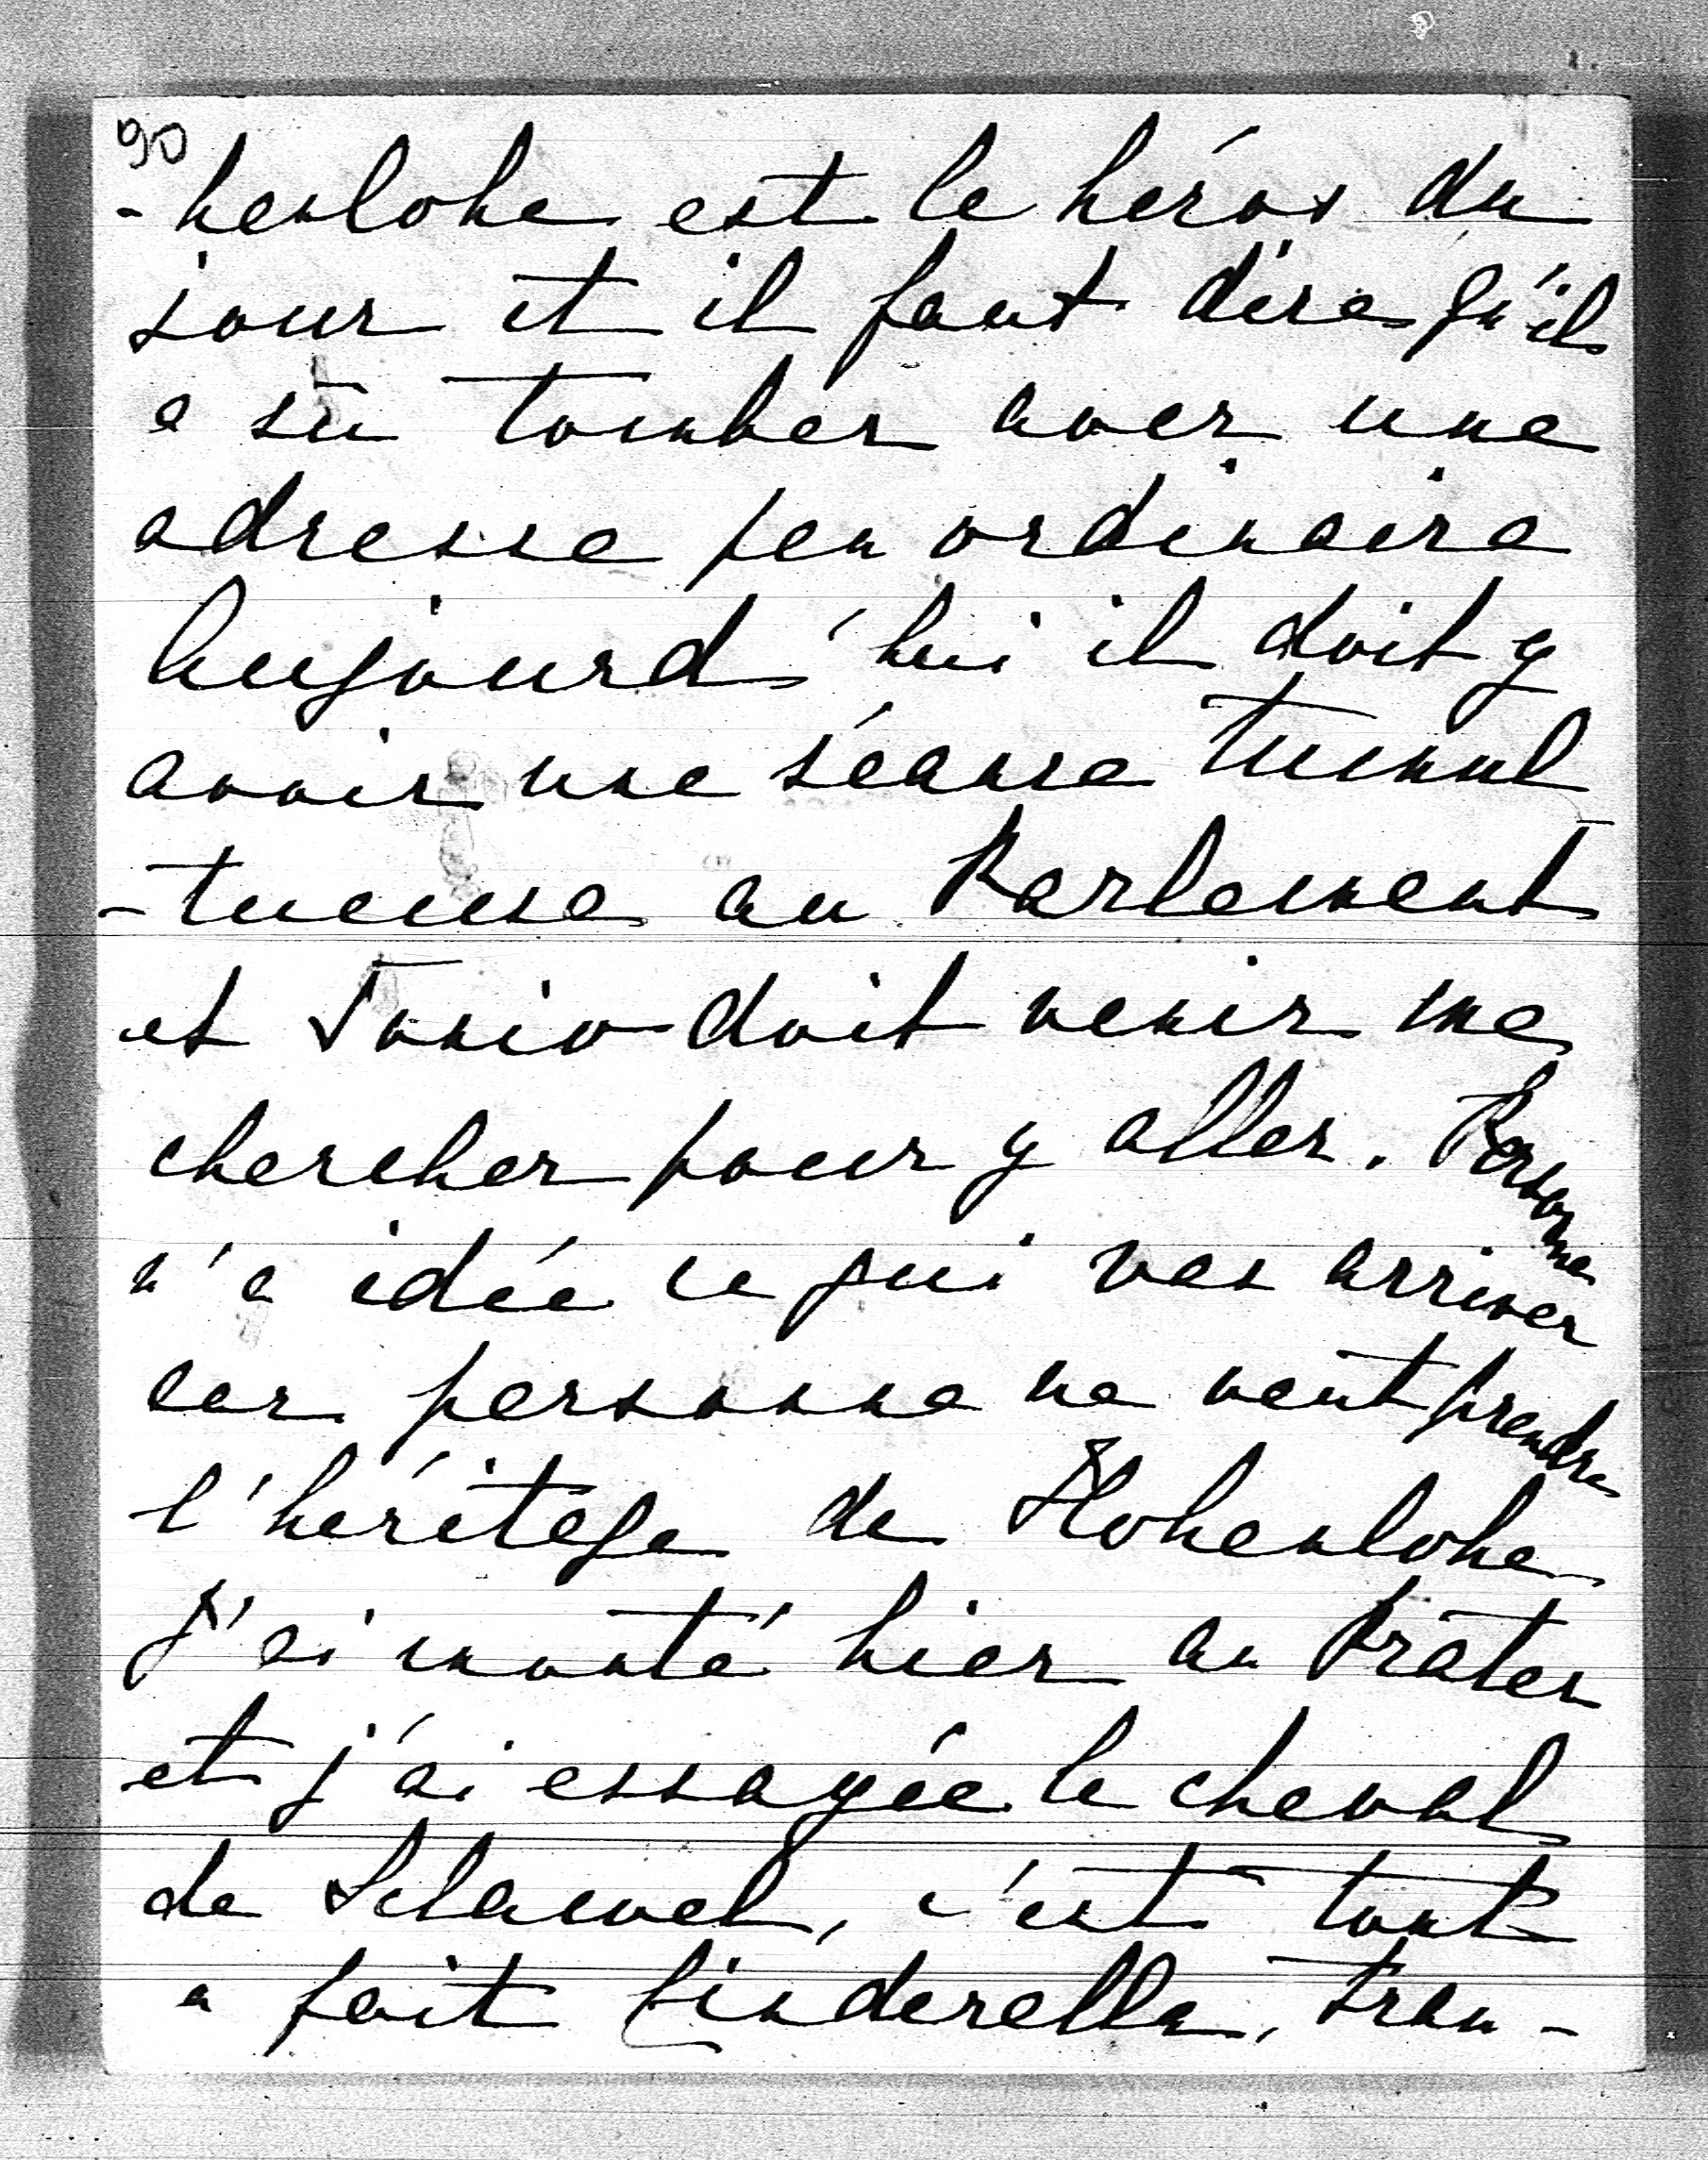 90
-henlohe est le héros du
jour et il faut dire qu'il
a sû tomber avec une
adresse peu ordinaire
Aujourd'hui il doit y
avoir une séance tumul
-tueuse au Parlement
et Tonio doit venir me
chercher pour y aller. Personne
n'a idée ce qui vas arriver
car personne ne veut prendre
l'héritage de Hohenlohe
J'ai monté hier au Prater
et j'ai essayée le cheval
de, c'est tout
a fait Cinderella, tran-